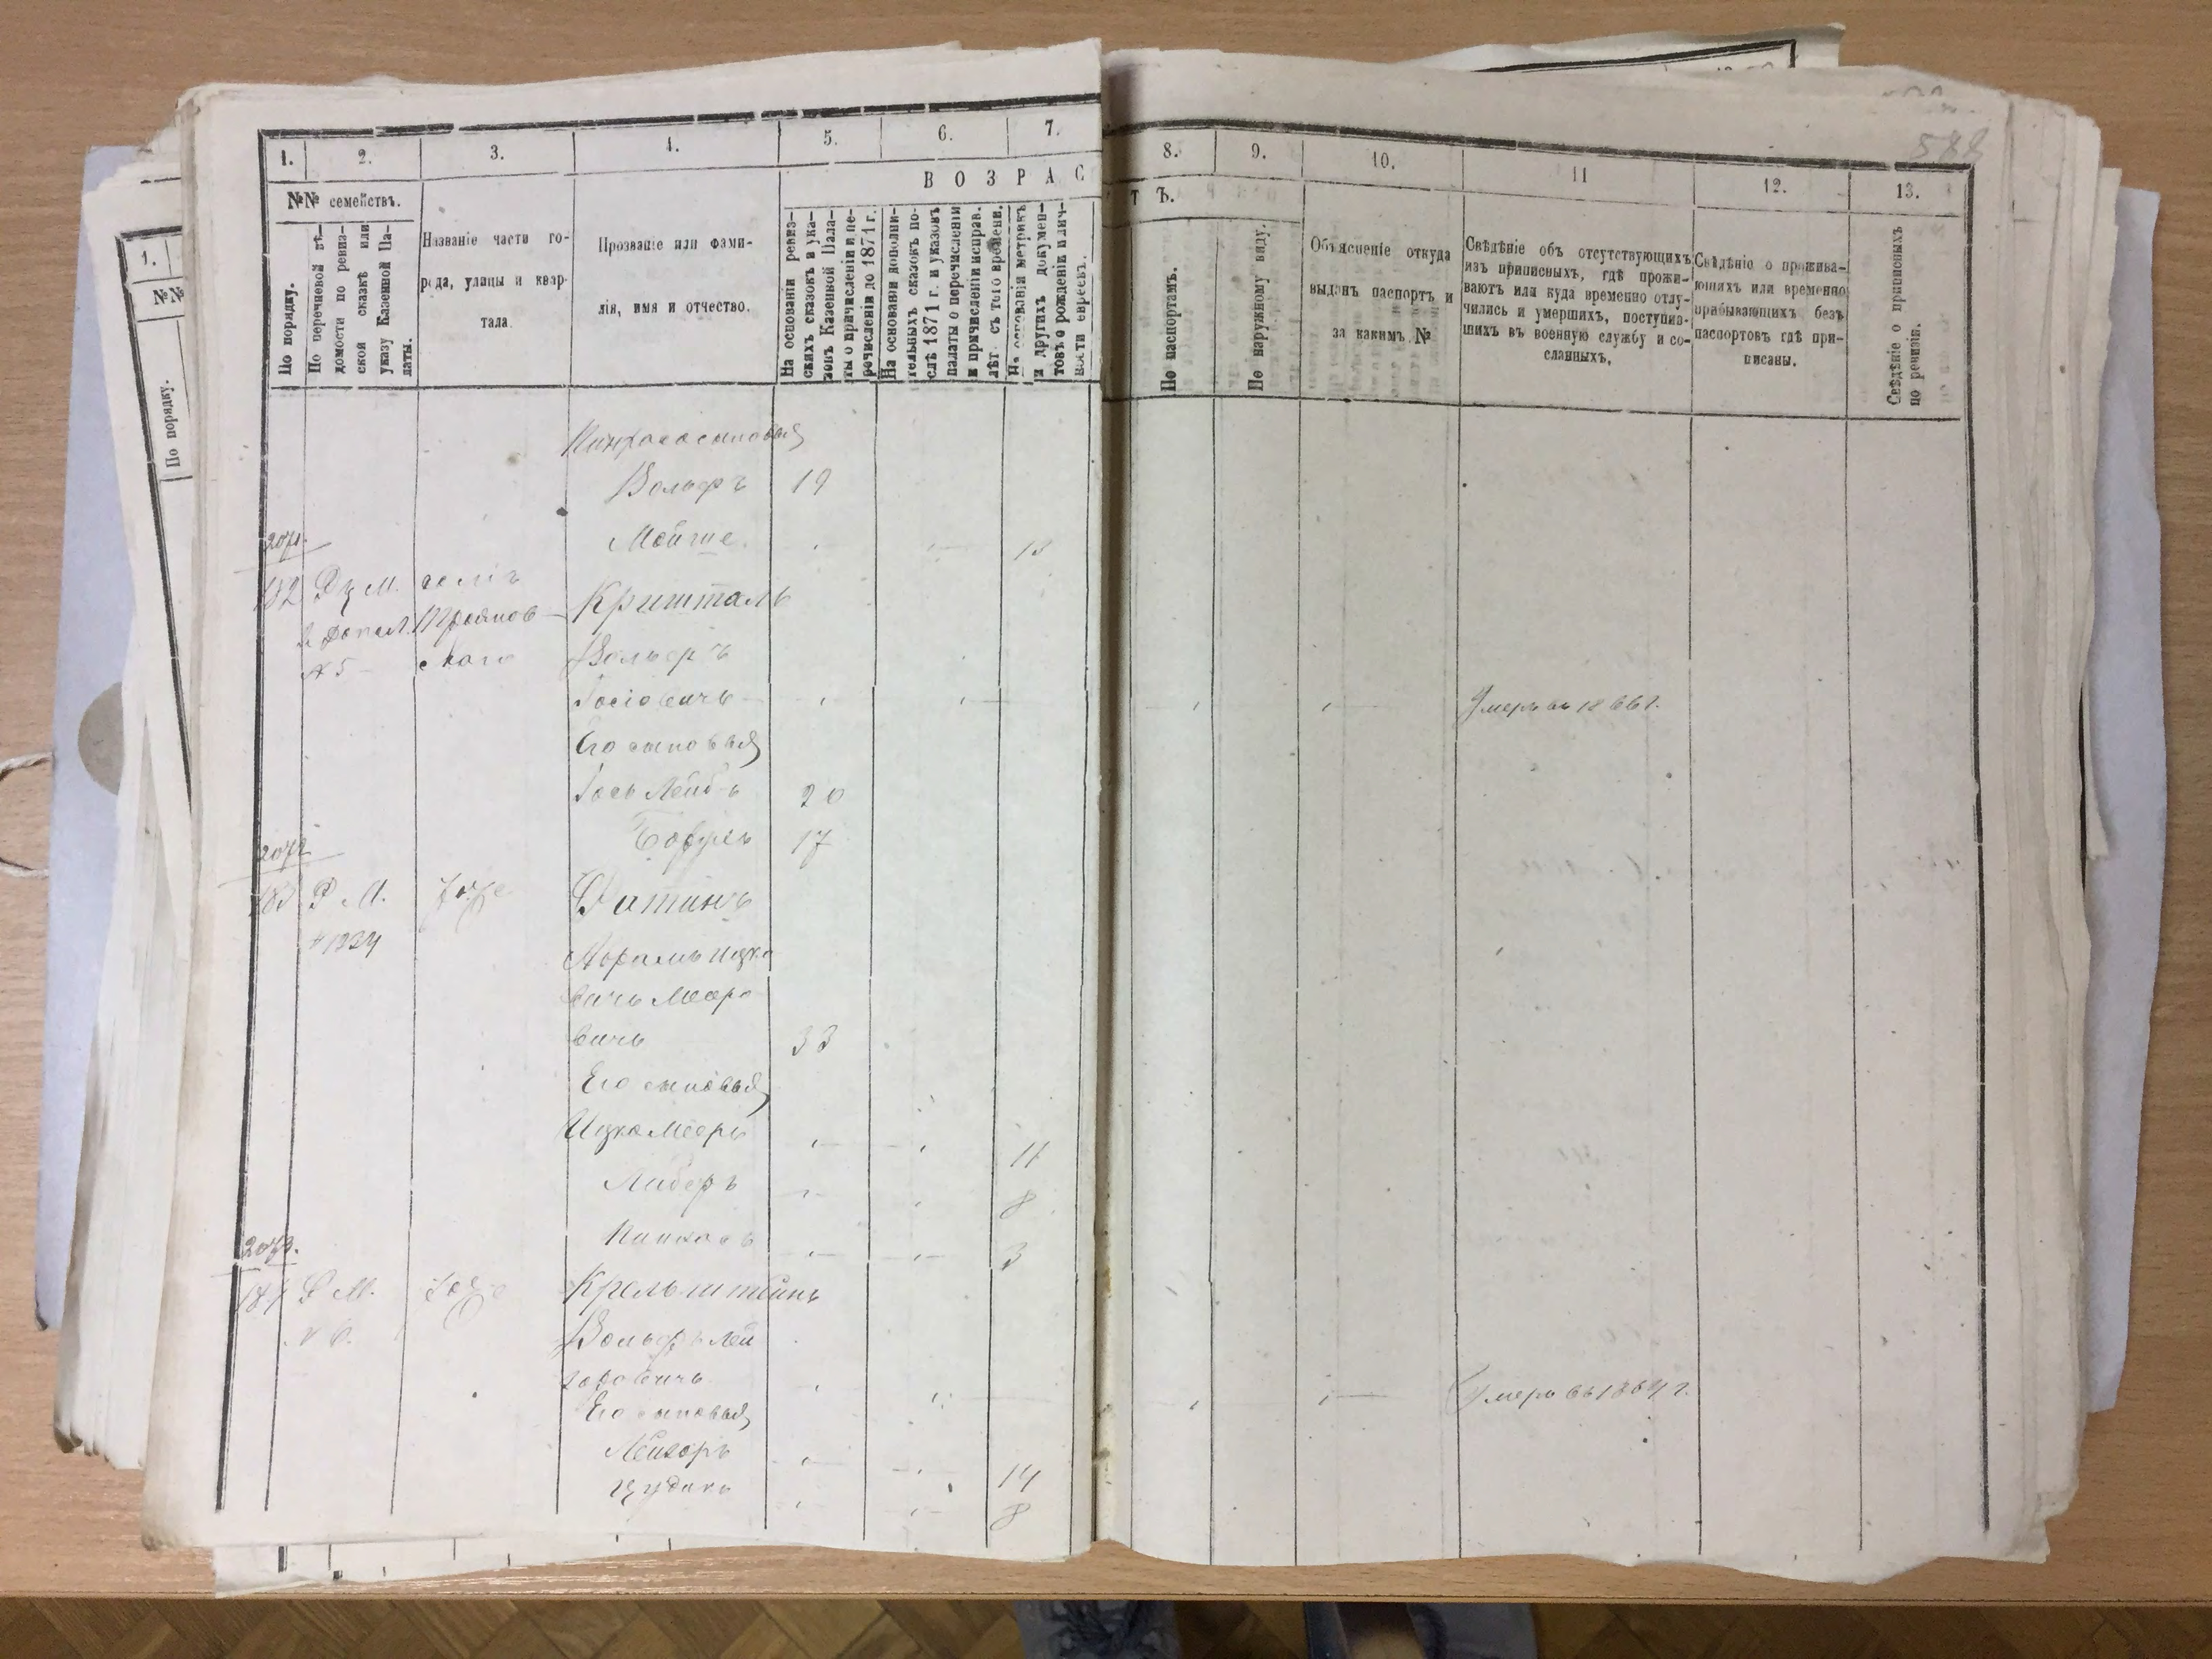 1. 2. 3. 4. 5. 6. 7. 8. 9. 10. 11 12. 13.
588
№№ семействъ.
По порядку.
По перечневой вѣ-
домости по ревиз-
ской сказкѣ или
указу Казенной Па-
латы.
Названіе части го-
рода, улицы и квар-
тала
Прозваніе или фами-
лія, имя и отчество.
ВОЗРАСТЪ.
На основаніи ревиз-
скихъ сказокъ и ука-
зовъ Казенной Пала-
ты о причисленіи и пе-
речисленіи до 1871 г.
На основаніи дополни-
тельныхъ сказокъ по-
слѣ 1871 г. и указовъ
палаты о перечисленіи
и причисленіи исправ.
лѣт. съ того времени.
На основаніи метрикъ
и другихъ докумен-
товъ о рожденіи и лич-
ности евреевъ.
По паспортамъ.
По наружному виду.
Объясненіе откуда
выданъ паспортъ и
за какимъ №
Свѣдѣніе объ отсутствующихъ
изъ приписныхъ, гдѣ прожи-
ваютъ или куда временно отлу-
чились и умершихъ, поступив-
шихъ въ военную службу и со-
сланныхъ.
Свѣдѣніе о прожива-
ющихъ или временно
прибывающихъ безъ
паспортовъ гдѣ при-
писаны.
Свѣдѣніе о приписныхъ
по ревизіи.
1.
№№
По порядку.
Пинхоса сыновья
Вольфъ 19
2071. Мойше 13
182 Р М.
Кришталь
Троянов-
№ 5 скаго Вольфъ
Іосіовичъ Умеръ въ 1866 г.
Его сыновья
Іось Лейбъ 20
17
2072
183 Р М. Фатинъ
№ 1234
Абрамъ Ицко
вичъ Мееро
вичъ 33
Его сыновья
Ицко Мееръ 11
Либеръ 8
Пинхосъ 3
2073.
184 Р М. Крельштейнъ
№ 6. Вольфъ Лей
зоровичъ Умеръ въ 1864 г.
Его сыновья
Лейзоръ 14
Цудикъ 8